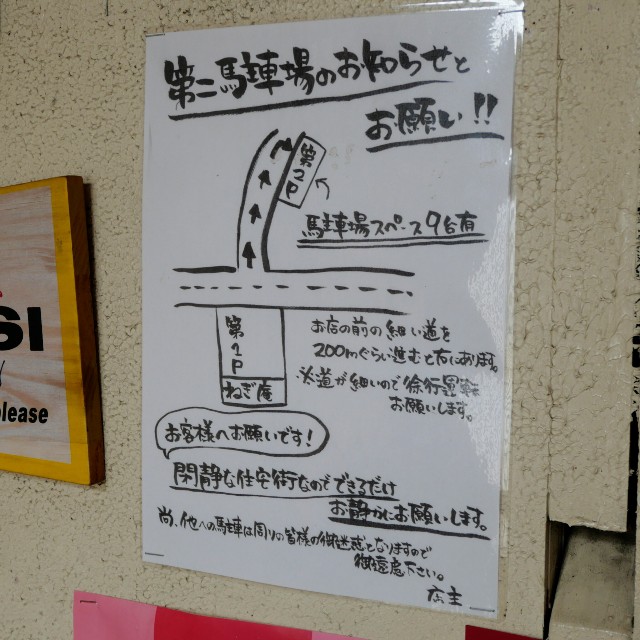 第二駐車場のお知らせと
お願い!!
第2P
駐車場スペース9台有
第1P
ねぎ庵
お店の前の細い道を
200mぐらい進むと右にあります。
※道が細いので徐行運転
お願いします。
お客様へお願いです!
閑静な住宅街なのでできるだけ
お静かにお願いします。
尚、他への駐車は周りに皆様の御迷惑となりますので
御遠慮下さい。
店主
SI
please